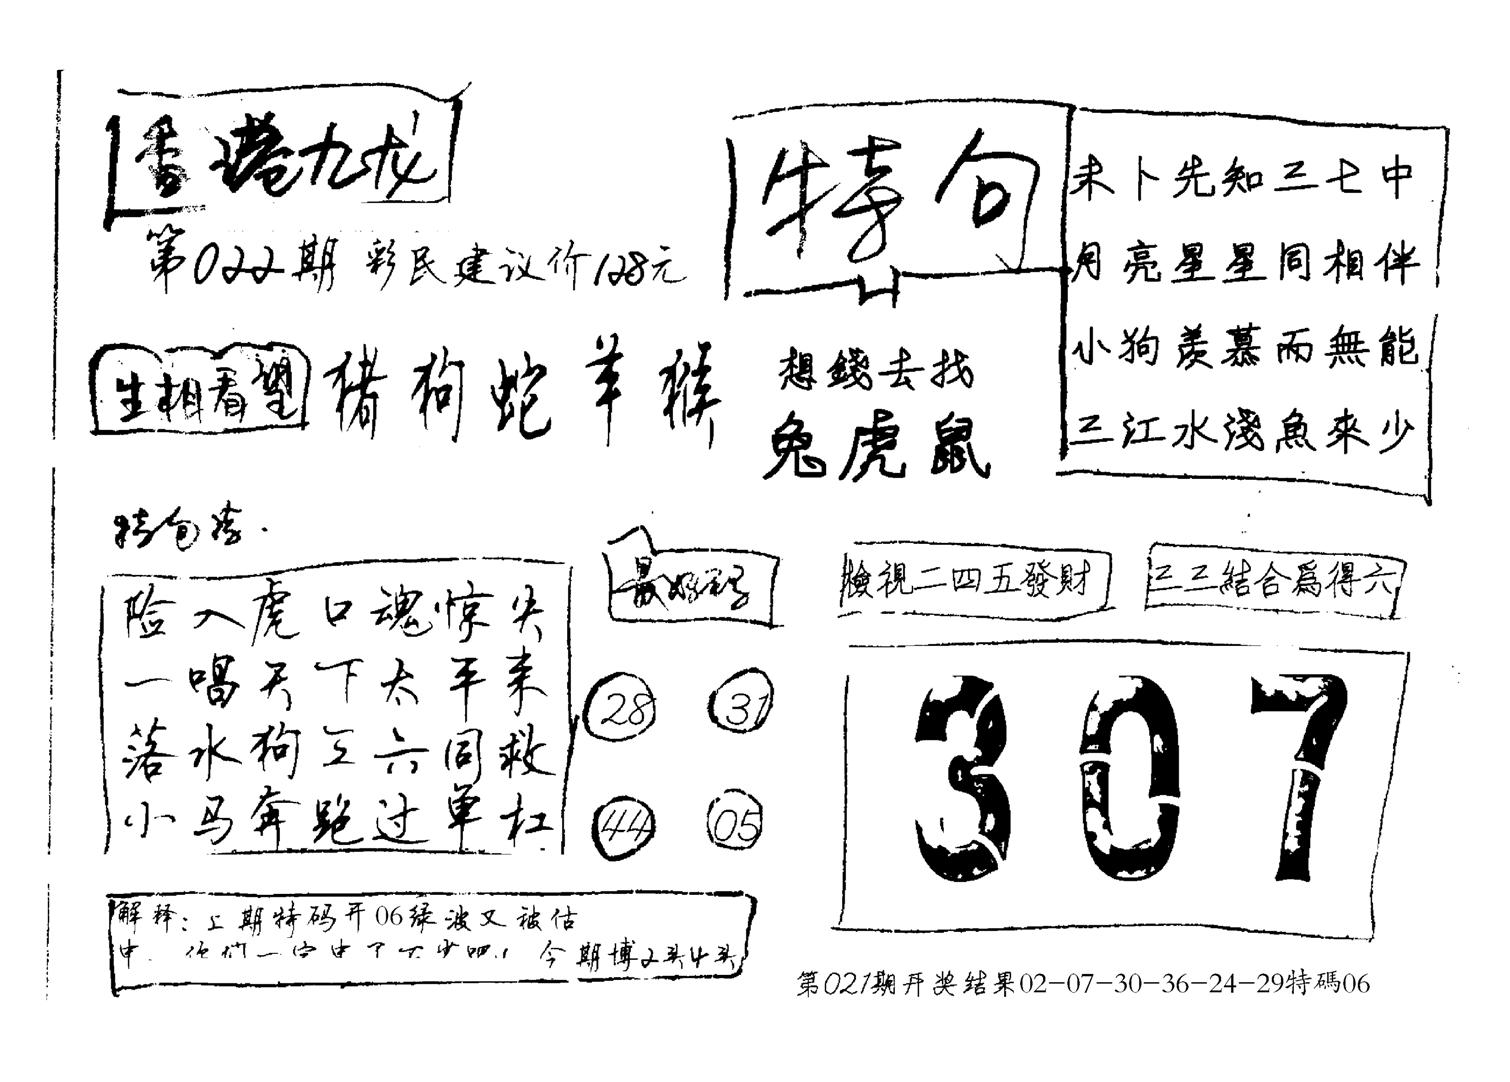 香港九龙
第022期 彩民建议价128元
生相看望
猪狗蛇羊猴
特句
未卜先知三七中
月亮星星同相伴
小狗羡慕而無能
三江水淺魚來少
想錢去找
兔虎鼠
险入虎口魂惊失
一唱天下太平来
落水狗三六同救
小马奔跑过单杠
最好码
28 31
44 05
檢視二四五發財
三三結合爲得六
307
解释:上期特码开06绿波又被估
中 你们一定中了不少吧! 今期博2头4头
第021期开奖结果02-07-30-36-24-29特碼06